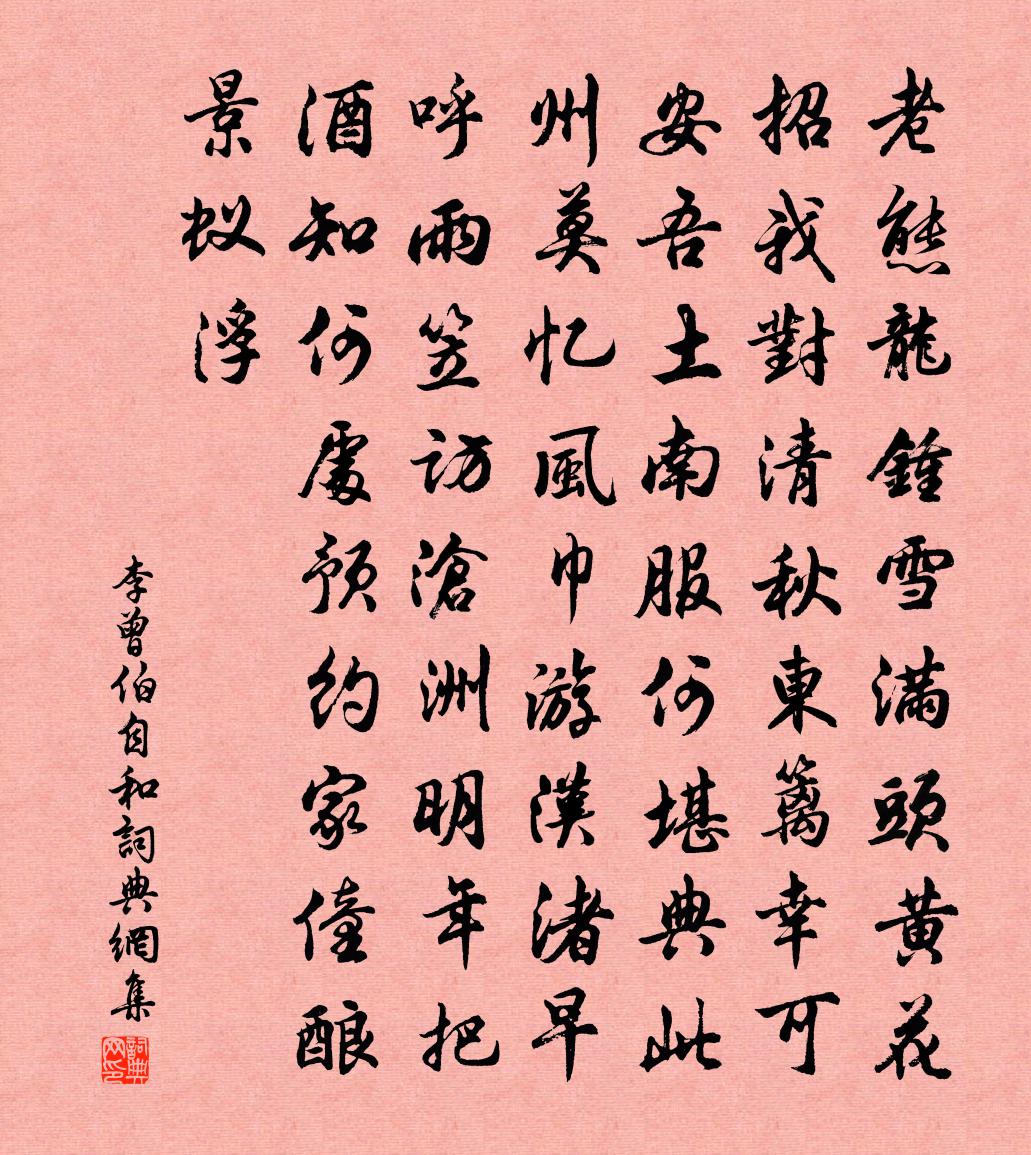 老態龍鍾雪滿頭黄花
招我對清秋東籬幸可
安吾土南服何堪典此
州莫忆風巾游漢渚早
呼雨笠訪滄洲明年把
酒知何處預約家僮酿
景蚁浮
李曾伯自和詞典網集
詞典网印